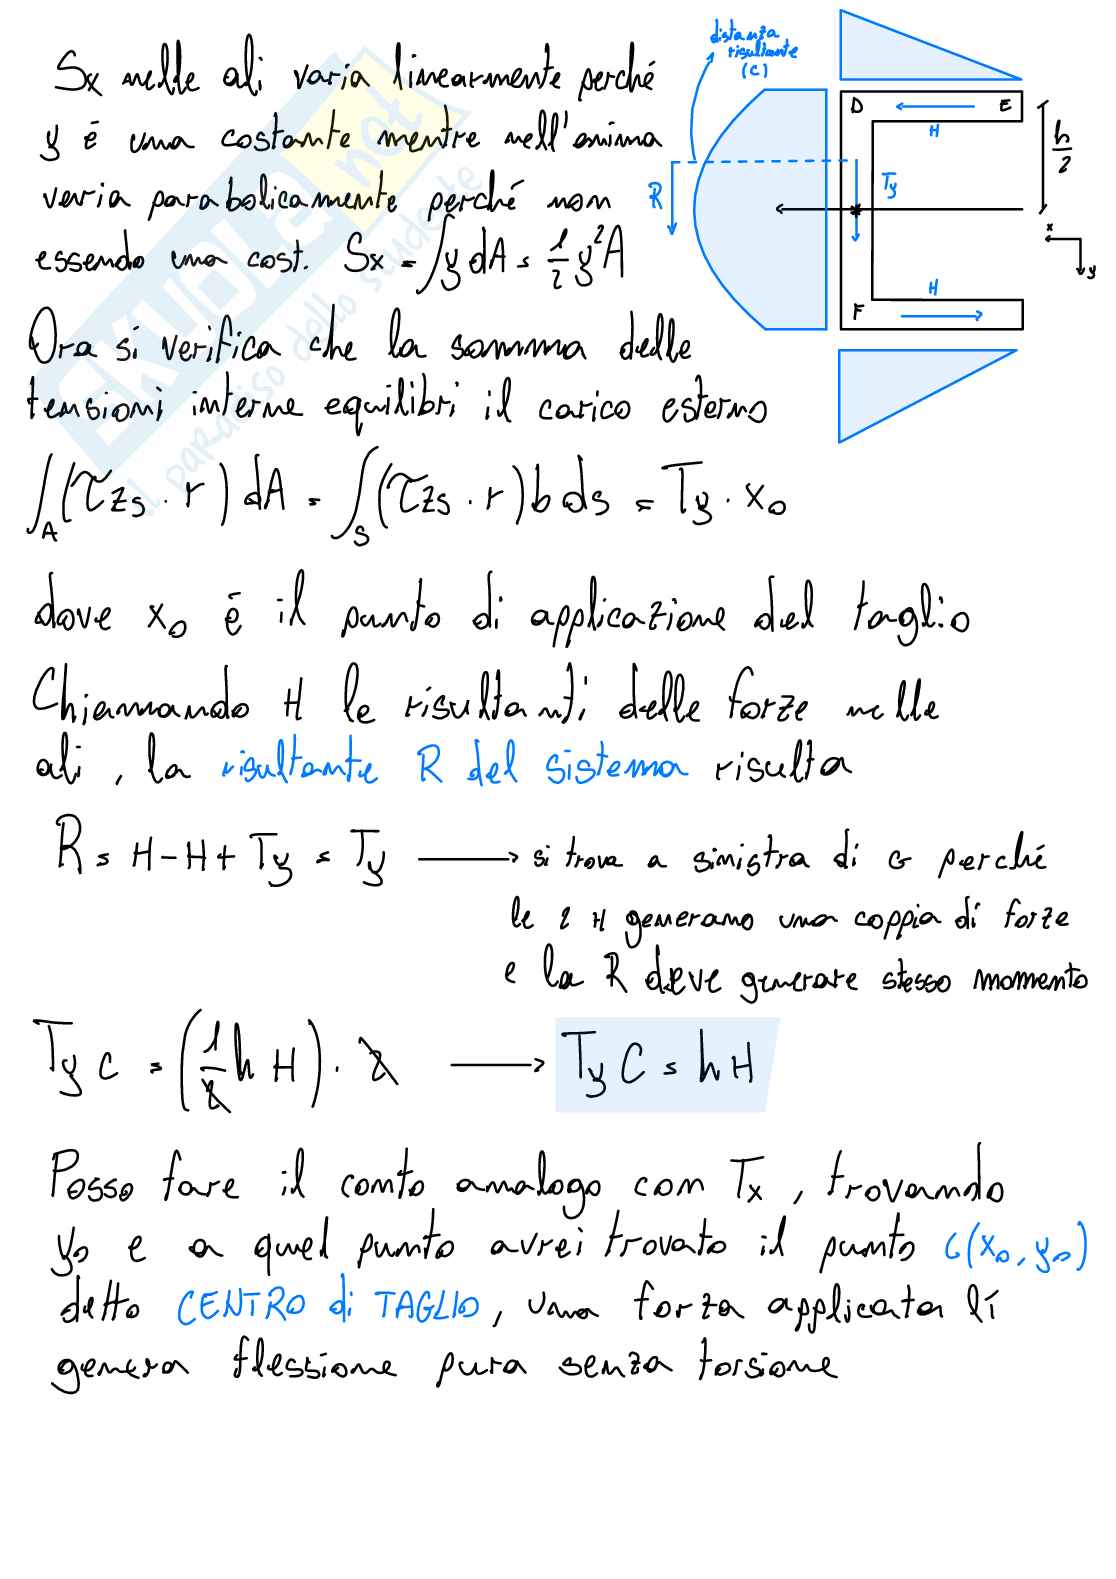 Sx nelle ali varia linearmente perché
y é una costante mentre nell'anima
varia parabolicamente perché non
essendo una cost. Sx = ∫y dA = 1/2 y² A
distanza
risultante
(C)
D
E
H
h/2
R
Ty
x
y
H
F
Ora si verifica che la somma delle
tensioni interne equilibri il carico esterno
∫_A (τzs · r) dA = ∫_S (τzs · r) b ds = Ty · x₀
dove x₀ é il punto di applicazione del taglio
Chiamando H le risultanti delle forze nelle
ali, la risultante R del sistema risulta
R = H - H + Ty = Ty → si trova a sinistra di G perché
le 2 H generano una coppia di forze
e la R deve generare stesso momento
Ty C = (1/2 h H) · 2 → Ty C = h H
Posso fare il conto analogo con Tx, trovando
y₀ e a quel punto avrei trovato il punto C(x₀, y₀)
detto CENTRO di TAGLIO, una forza applicata lí
genera flessione pura senza torsione
SKUOLA.net
il paradiso dello studente